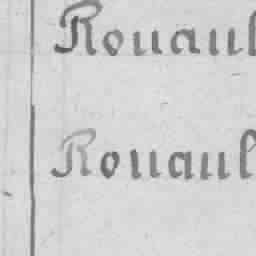 Rouaul
Rouaul